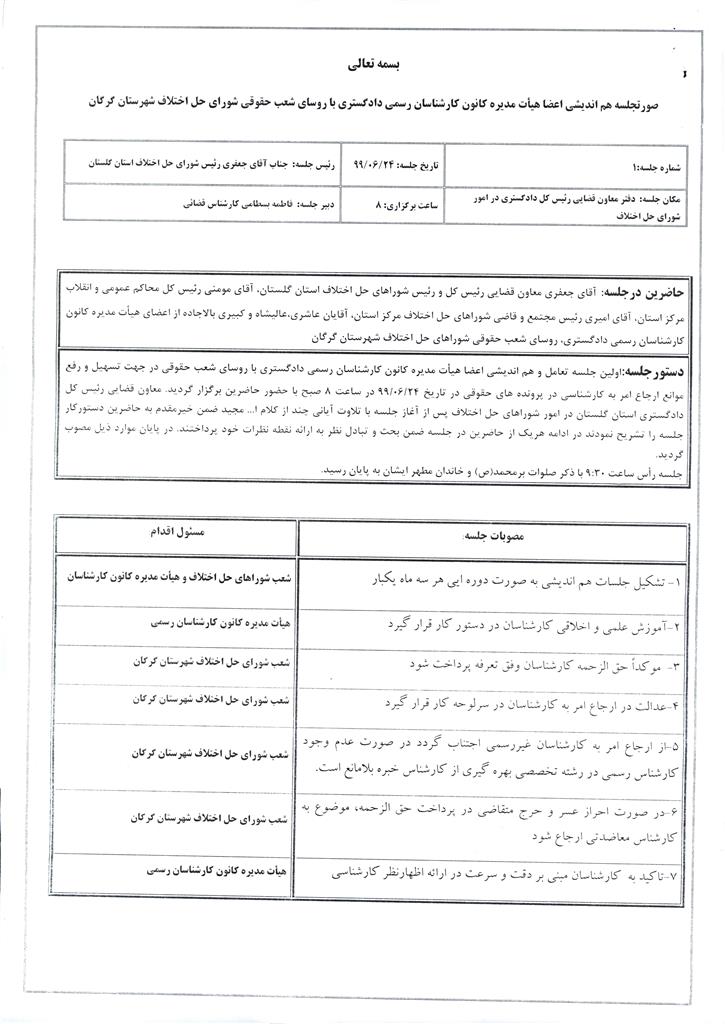 بسمه تعالی
صورتجلسه هم اندیشی اعضا هیأت مدیره کانون کارشناسان رسمی دادگستری با روسای شعب حقوقی شورای حل اختلاف شهرستان گرگان
شماره جلسه:۱
تاریخ جلسه: ۹۹/۰۶/۲۴
رئیس جلسه: جناب آقای جعفری رئیس شورای حل اختلاف استان گلستان
مکان جلسه: دفتر معاون قضایی رئیس کل دادگستری در امور
شورای حل اختلاف
ساعت برگزاری: ۸
دبیر جلسه: فاطمه بسطامی کارشناس قضائی
حاضرین درجلسه: آقای جعفری معاون قضایی رئیس کل و رئیس شوراهای حل اختلاف استان گلستان، آقای مومنی رئیس کل محاکم عمومی و انقلاب
مرکز استان، آقای امیری رئیس مجتمع و قاضی شوراهای حل اختلاف مرکز استان، آقایان عاشری،عالیشاه و کبیری بالاجاده از اعضای هیأت مدیره کانون
کارشناسان رسمی دادگستری، روسای شعب حقوقی شوراهای حل اختلاف شهرستان گرگان
دستور جلسه:اولین جلسه تعامل و هم اندیشی اعضا هیأت مدیره کانون کارشناسان رسمی دادگستری با روسای شعب حقوقی در جهت تسهیل و رفع
موانع ارجاع امر به کارشناسی در پرونده های حقوقی در تاریخ ۹۹/۰۶/۲۴ در ساعت ۸ صبح با حضور حاضرین برگزار گردید. معاون قضایی رئیس کل
دادگستری استان گلستان در امور شوراهای حل اختلاف پس از آغاز جلسه با تلاوت آیاتی چند از کلام ا... مجید ضمن خیرمقدم به حاضرین دستورکار
جلسه را تشریح نمودند در ادامه هریک از حاضرین در جلسه ضمن بحث و تبادل نظر به ارائه نقطه نظرات خود پرداختند. در پایان موارد ذیل مصوب
گردید.
جلسه رأس ساعت ۹:۳۰ با ذکر صلوات برمحمد(ص) و خاندان مطهر ایشان به پایان رسید.
مصوبات جلسه:
مسئول اقدام
۱- تشکیل جلسات هم اندیشی به صورت دوره ایی هر سه ماه یکبار
شعب شوراهای حل اختلاف و هیأت مدیره کانون کارشناسان
۲-آموزش علمی و اخلاقی کارشناسان در دستور کار قرار گیرد
هیأت مدیره کانون کارشناسان رسمی
۳- موکداً حق الزحمه کارشناسان وفق تعرفه پرداخت شود
شعب شورای حل اختلاف شهرستان گرگان
۴-عدالت در ارجاع امر به کارشناسان در سرلوحه کار قرار گیرد
شعب شورای حل اختلاف شهرستان گرگان
۵-از ارجاع امر به کارشناسان غیررسمی اجتناب گردد در صورت عدم وجود
کارشناس رسمی در رشته تخصصی بهره گیری از کارشناس خبره بلامانع است.
شعب شورای حل اختلاف شهرستان گرگان
۶-در صورت احراز عسر و حرج متقاضی در پرداخت حق الزحمه، موضوع به
کارشناس معاضدتی ارجاع شود
شعب شورای حل اختلاف شهرستان گرگان
۷-تاکید به کارشناسان مبنی بر دقت و سرعت در ارائه اظهارنظر کارشناسی
هیأت مدیره کانون کارشناسان رسمی